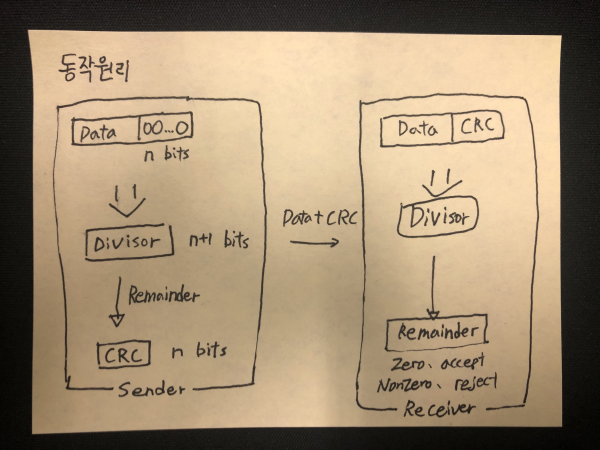 동작원리
Data 00...0
n bits
Divisor n+1 bits
Remainder
CRC n bits
Sender
Data+CRC
Data CRC
Divisor
Remainder
Zero, accept
NonZero, reject
Receiver